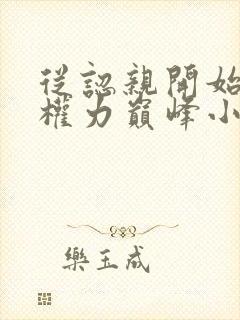 從認親開始
權力巔峰小
樂玉成